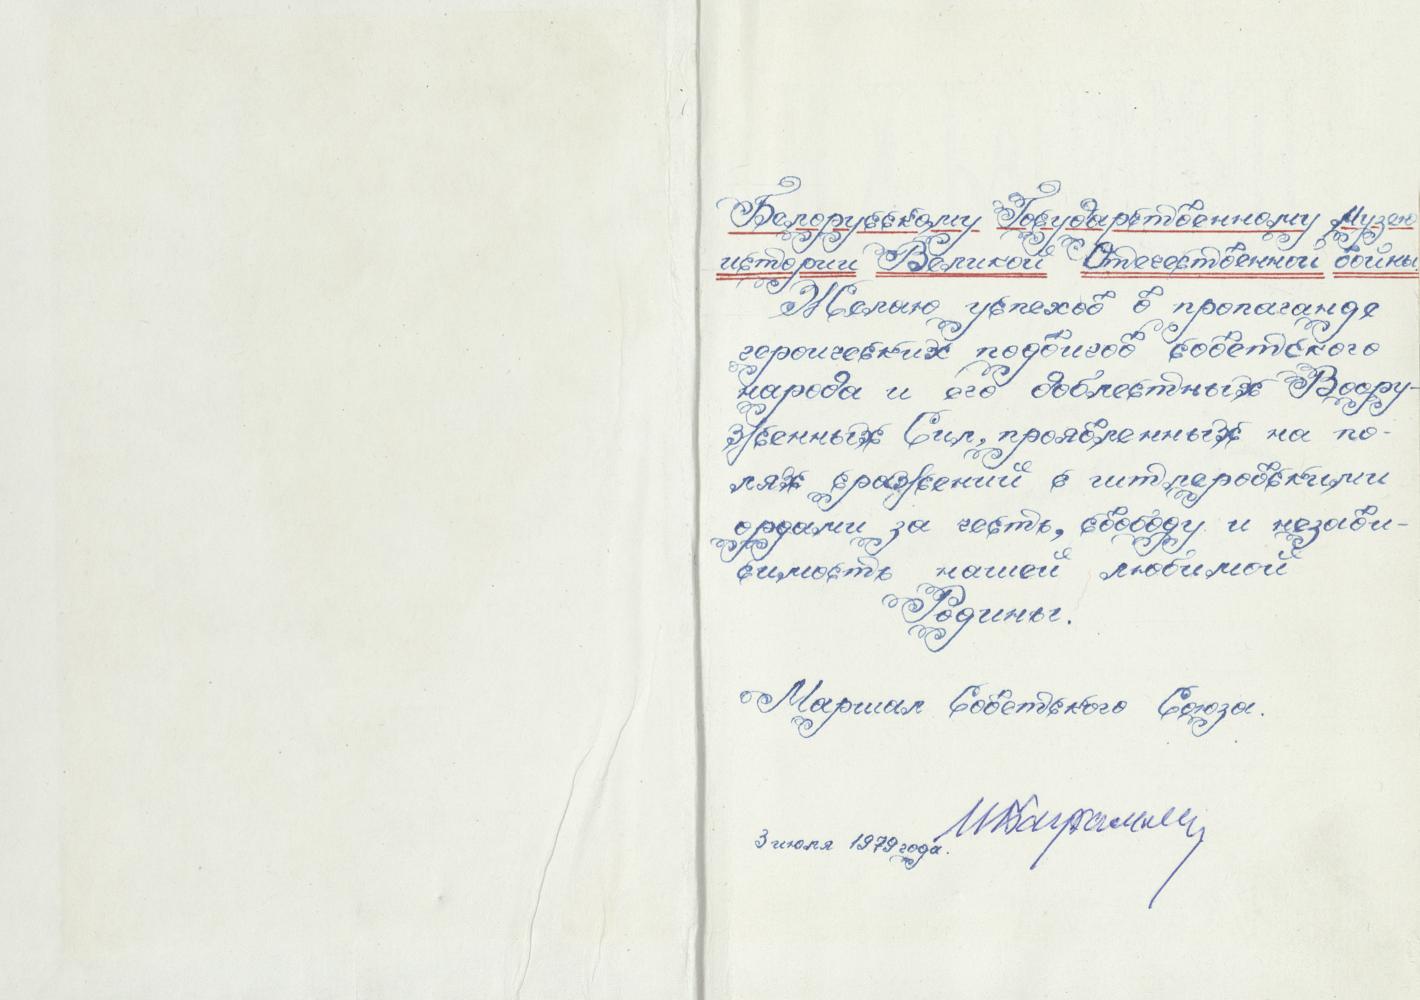 Белорусскому Государственному Музею
истории Великой Отечественной войны
Желаю успехов в пропаганде
героических подвигов советского
народа и его доблестных Воору-
женных Сил, проявленных на по-
лях сражений с гитлеровскими
ордами за честь, свободу и незави-
симость нашей любимой
Родины.
Маршал Советского Союза.
И Баграмян
3 июля 1979 года.